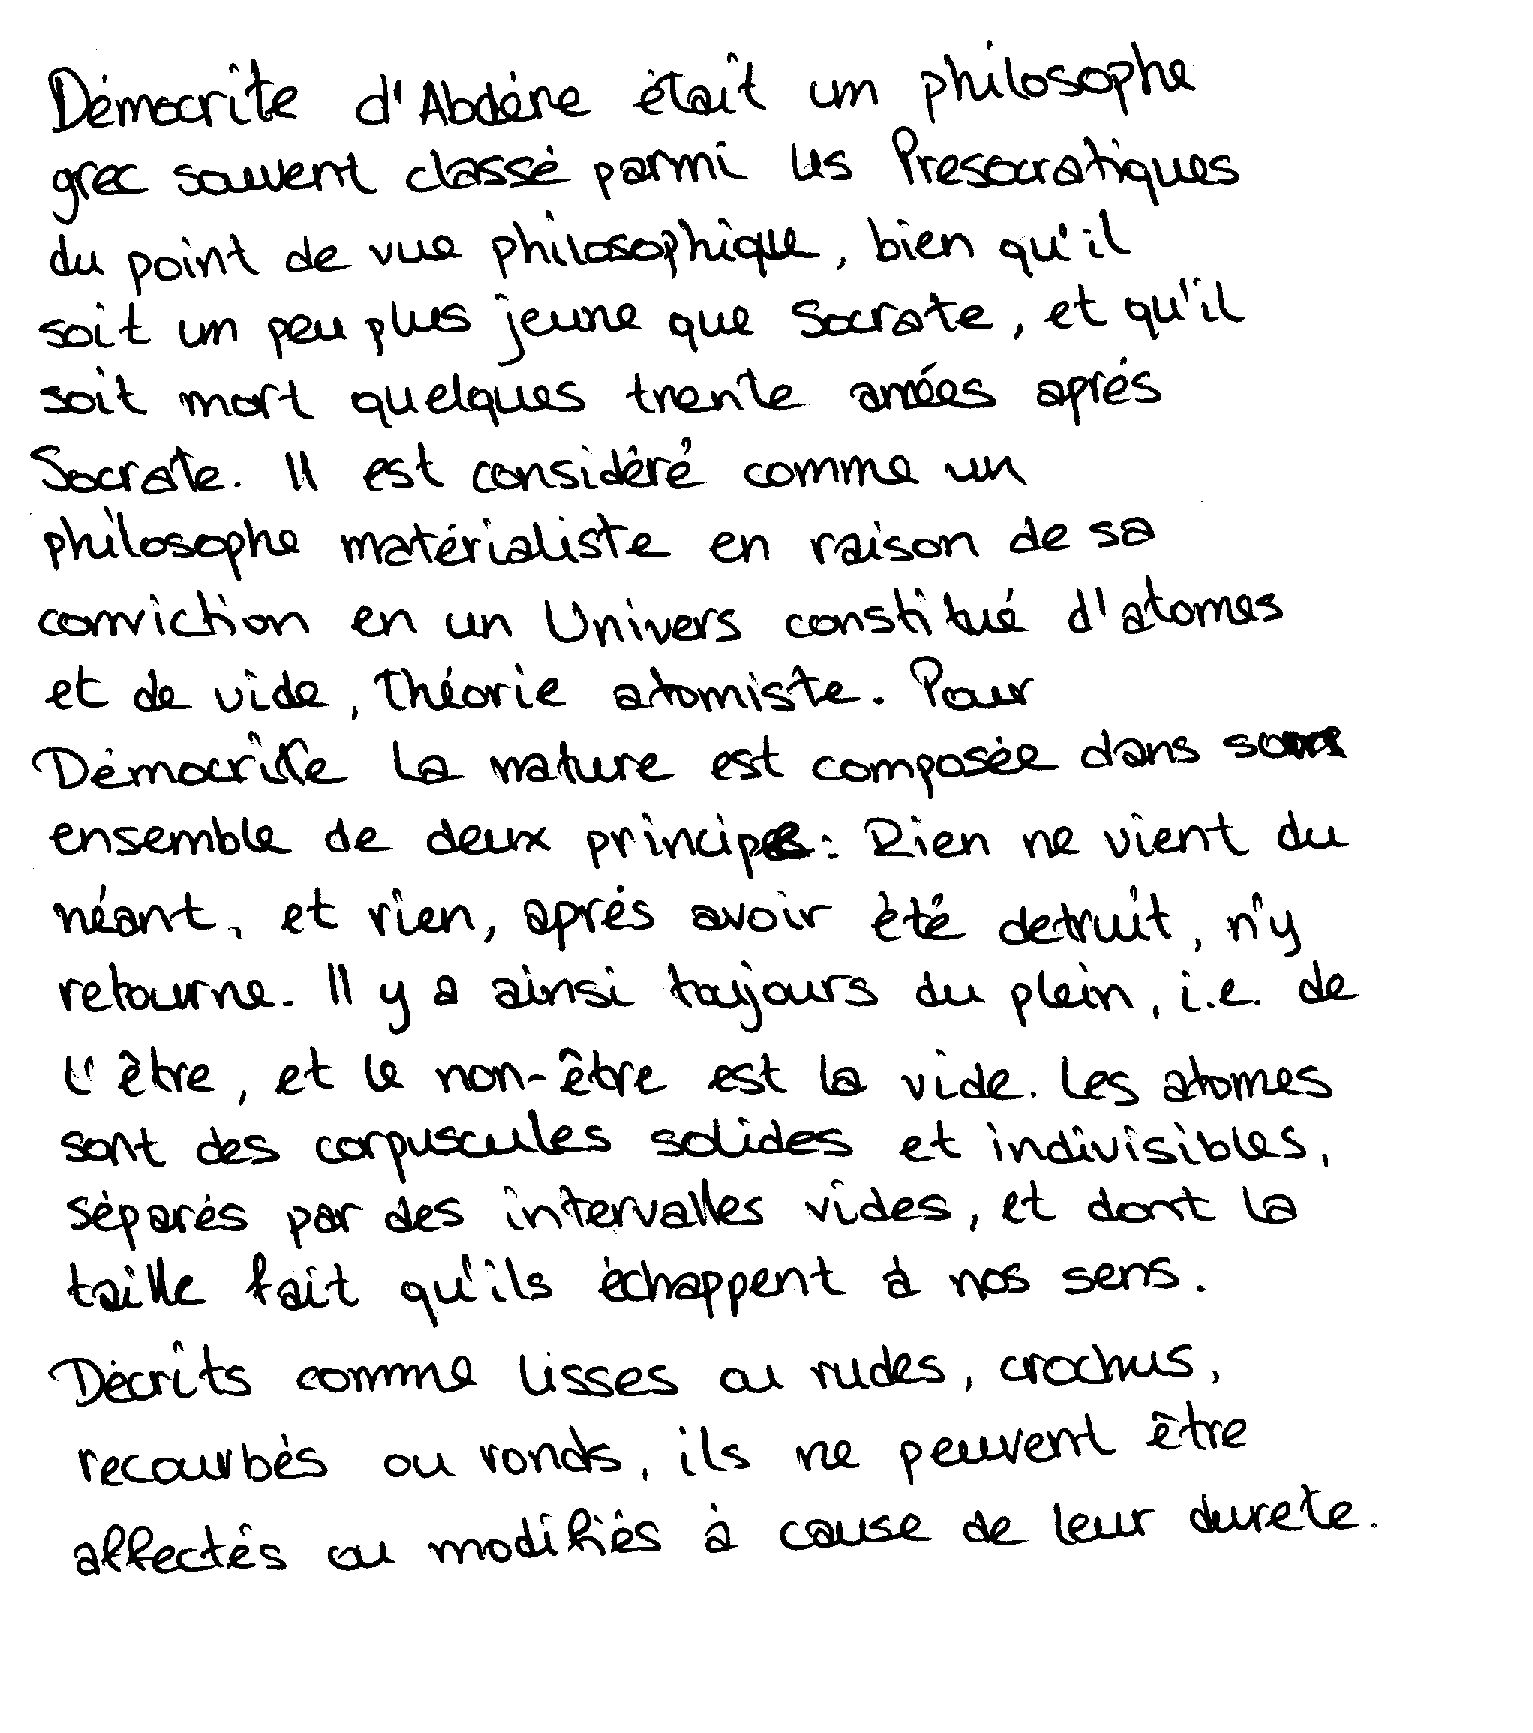 Démocrite d'Abdère était un philosophe
grec souvent classé parmi les Presocratiques
du point de vue philosophique, bien qu'il
soit un peu plus jeune que Socrate, et qu'il
soit mort quelques trente années après
Socrate. Il est considéré comme un
philosophe matérialiste en raison de sa
conviction en un Univers constitué d'atomes
et de vide, théorie atomiste. Pour
Démocrite la nature est composée dans son
ensemble de deux principe: Rien ne vient du
néant, et rien, après avoir été detruit, n'y
retourne. Il y a ainsi toujours du plein, i.e. de
l'être, et le non-être est la vide. Les atomes
sont des corpuscules solides et indivisibles,
séparés par des intervalles vides, et dont la
taille fait qu'ils échappent à nos sens.
Décrits comme lisses ou rudes, crochus,
recourbés ou ronds, ils ne peuvent être
affectés ou modifiés à cause de leur durete.